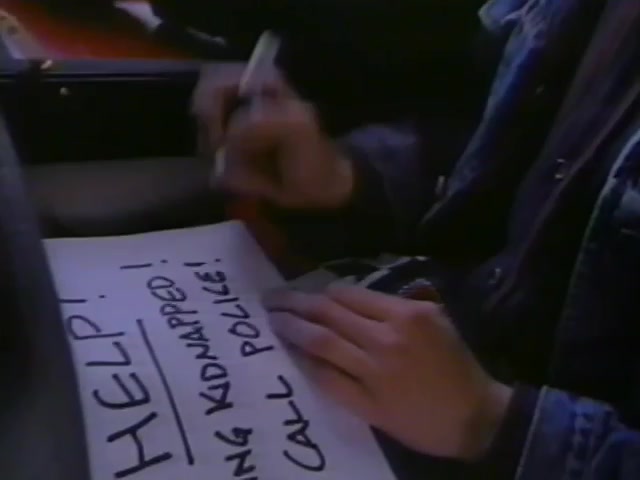 HELP!
NG KIDNAPPED!
CALL POLICE!